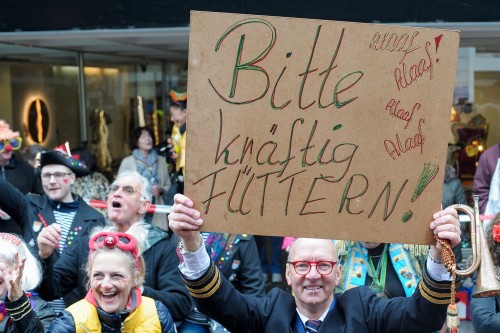 Bitte
kräftig
FÜTTERN!
Alaaf
Alaaf!
Alaaf
Alaaf